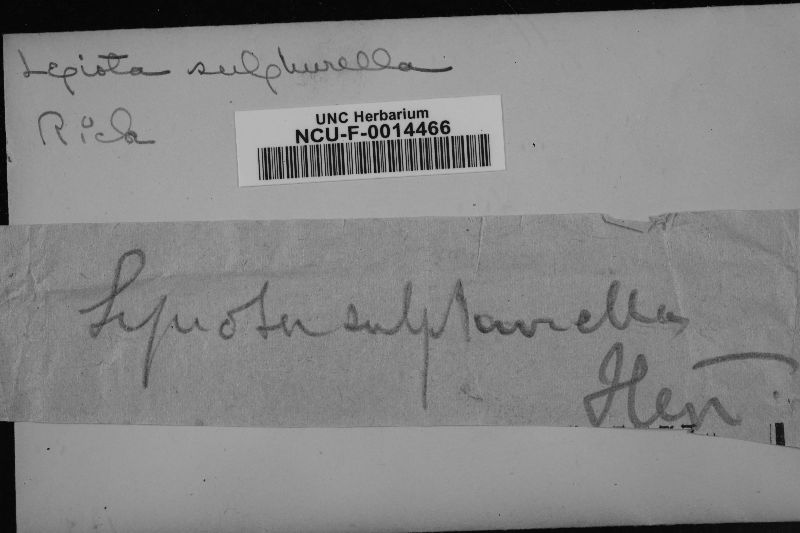 Lepiota sulphurella
Rick
UNC Herbarium
NCU-F-0014466
Lepiota sulphurella